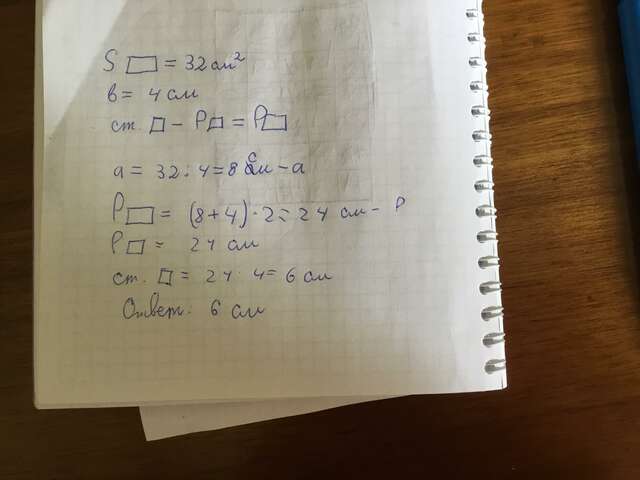 S ▭ = 32 см²
в = 4 см
ст. □ – P□ = P▭
a = 32 : 4 = 8 см – a
P▭ = (8+4) · 2 = 24 см – P
P□ = 24 см
ст. □ = 24 : 4 = 6 см
Ответ: 6 см